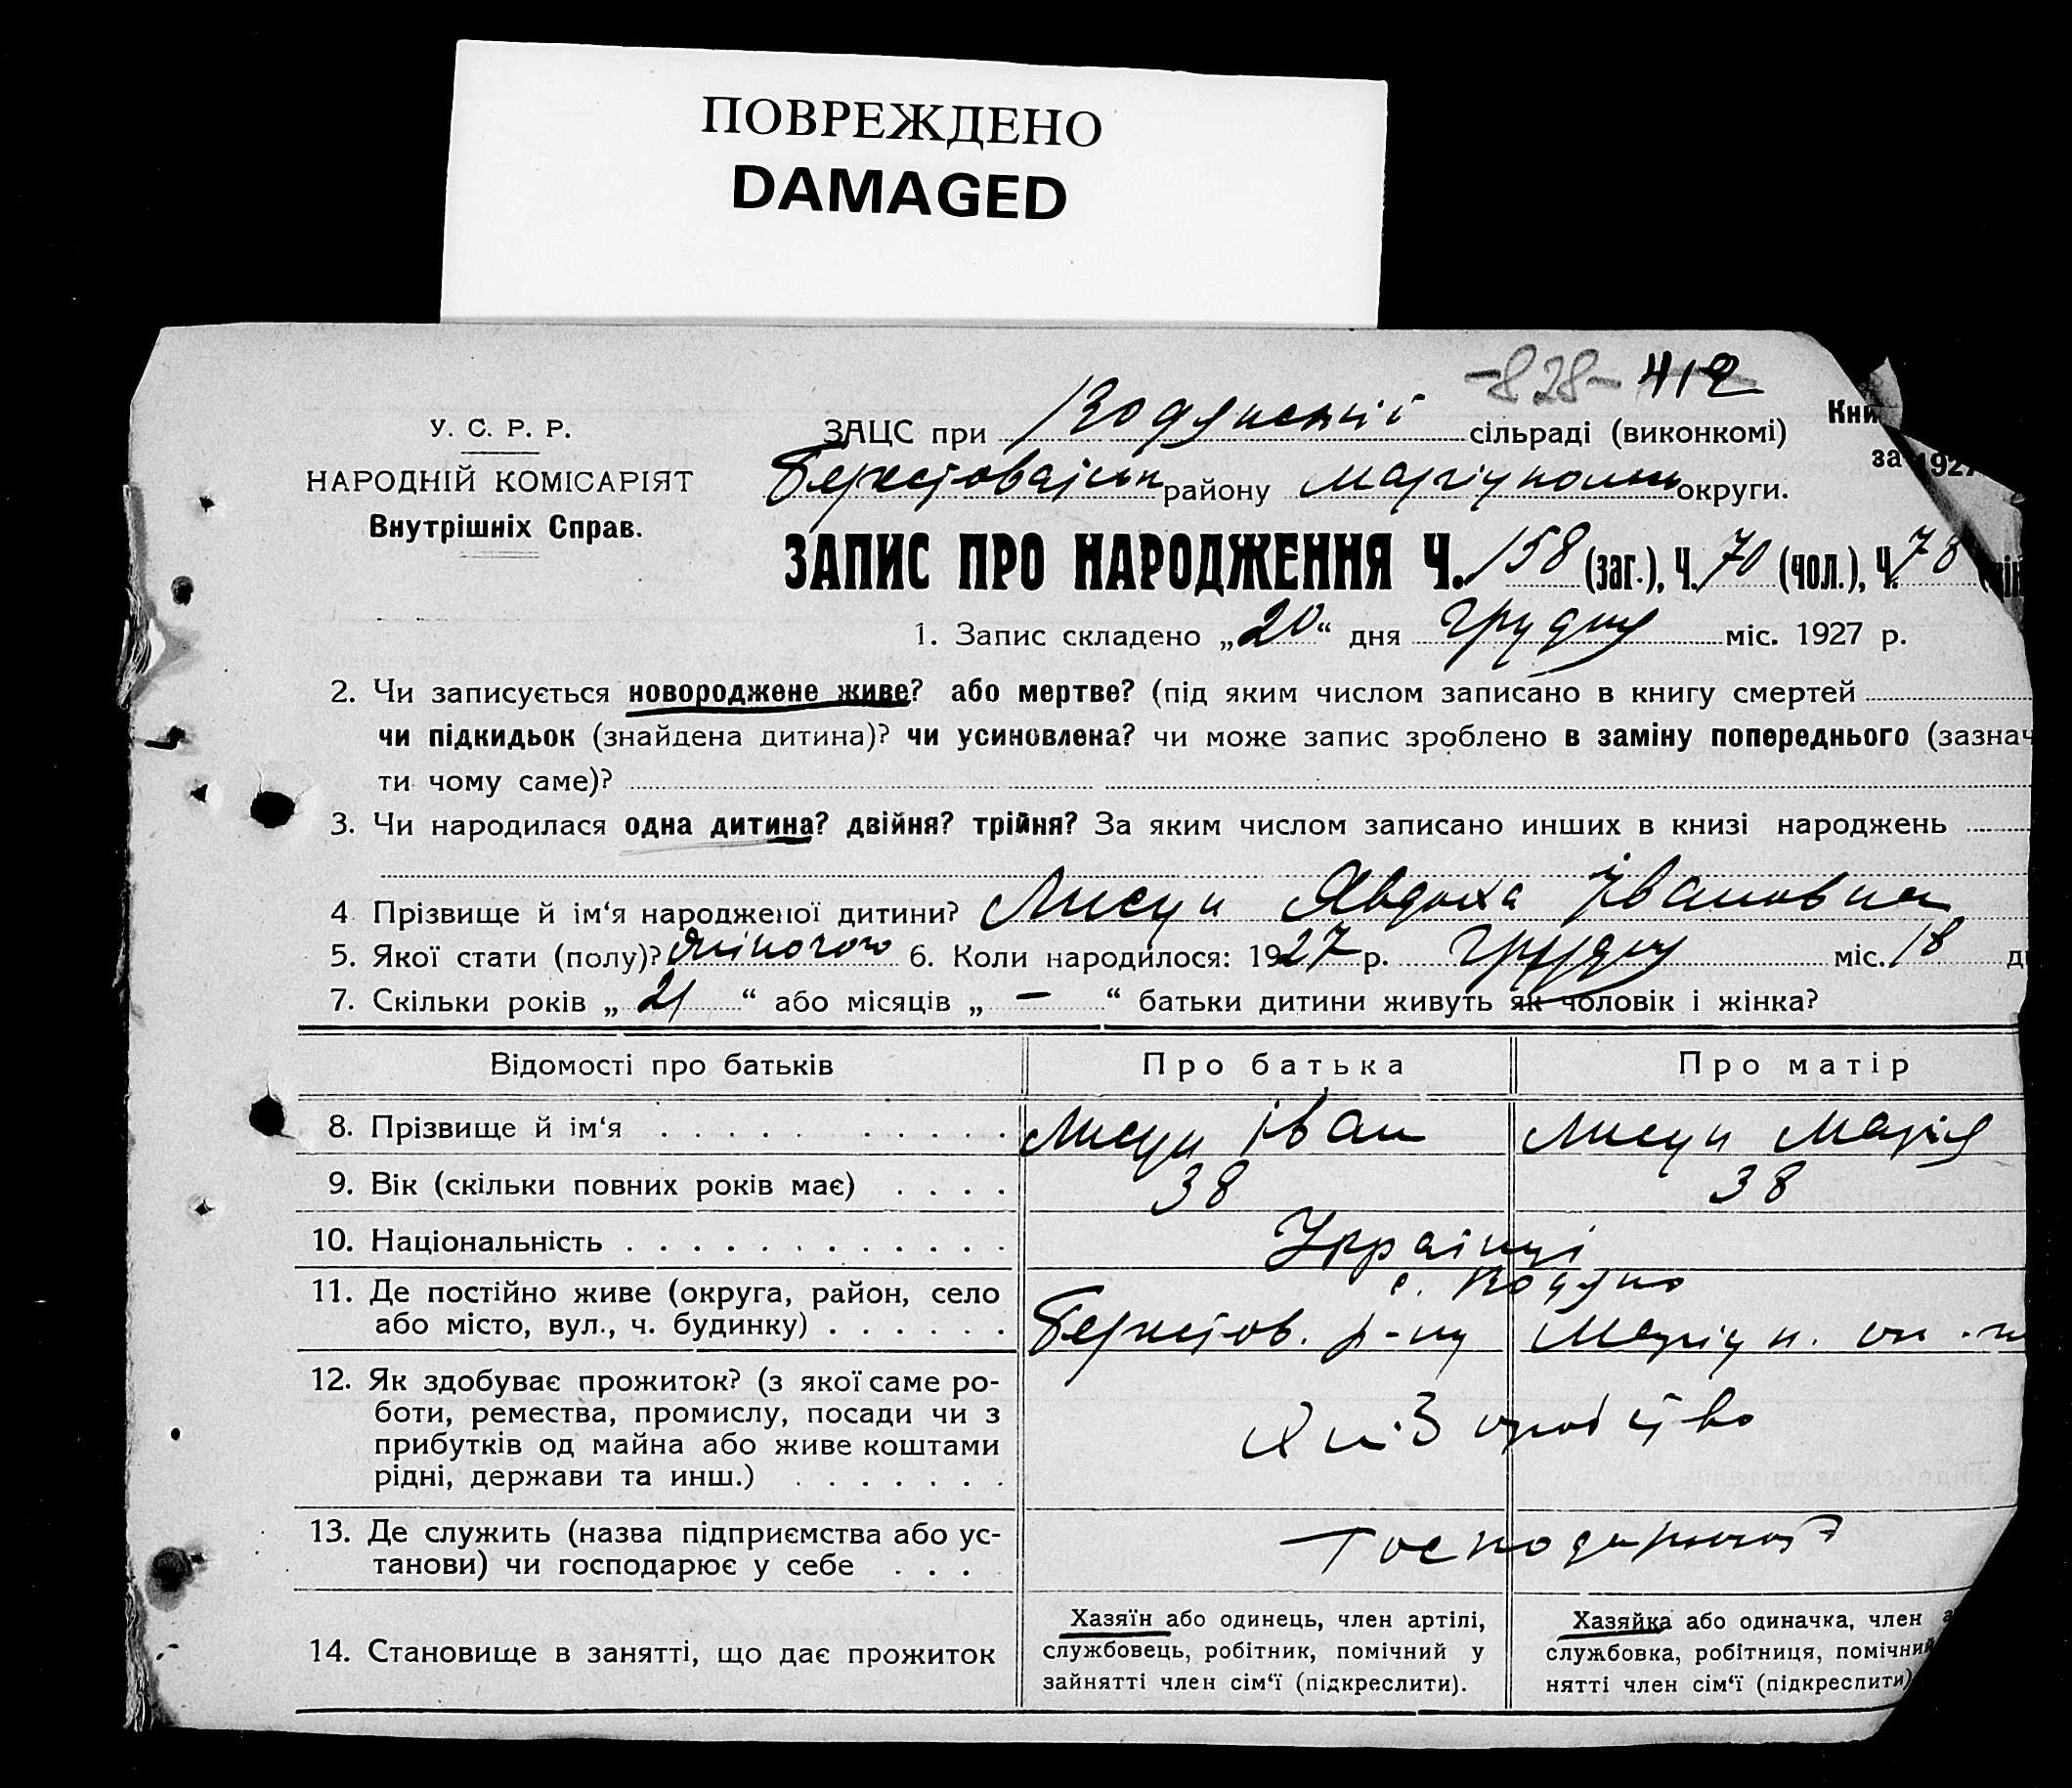 ПОВРЕЖДЕНО
DAMAGED
-828- 412
У. С. Р. Р.
НАРОДНІЙ КОМІСАРІЯТ
Внутрішніх Справ.
ЗАЦС при Водянській сільраді (виконкомі)
Кни
за 1927
Берестовайськ району Маріупольськ округи.
ЗАПИС ПРО НАРОДЖЕННЯ Ч. 158 (заг.), Ч. 70 (чол.), Ч. 78
1. Запис складено „20“ дня Грудня міс. 1927 р.
2. Чи записується новороджене живе? або мертве? (під яким числом записано в книгу смертей
чи підкидьок (знайдена дитина)? чи усиновлена? чи може запис зроблено в заміну попереднього (зазнач
ти чому саме)?
3. Чи народилася одна дитина? двійня? трійня? За яким числом записано инших в книзі народжень
4 Прізвище й ім‘я народженої дитини? Лисун Явдоха Івановна
5. Якої стати (полу)? жіночого 6. Коли народилося: 1927 р. Грудня міс. 18 д
7. Скільки років „21“ або місяців „—“ батьки дитини живуть як чоловік і жінка?
Відомості про батьків Про батька Про матір
8. Прізвище й ім‘я Лисун Іван Лисун Марія
9. Вік (скільки повних років має) 38 38
10. Національність Українці
11. Де постійно живе (округа, район, село с. Водяно
або місто, вул., ч. будинку) Берестов. р-ну Маріуп. ок.
12. Як здобуває прожиток? (з якої саме ро-
боти, ремества, промислу, посади чи з
прибутків од майна або живе коштами
рідні, держави та инш.)
13. Де служить (назва підприємства або ус-
танови) чи господарює у себе
14. Становище в занятті, що дає прожиток
Хазяїн або одинець, член артілі,
службовець, робітник, помічний у
зайнятті член сім‘ї (підкреслити).
Хазяйка або одиначка, член а
службовка, робітниця, помічний
нятті член сім‘ї (підкреслити)